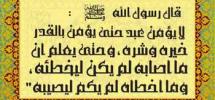 قال رسول الله ﷺ :
لا يؤمن عبد حتى يؤمن بالقدر
خيره وشره، وحتى يعلم ان
ما اصابه لم يكن ليخطئه،
وما اخطاه لم يكم ليصيبه"